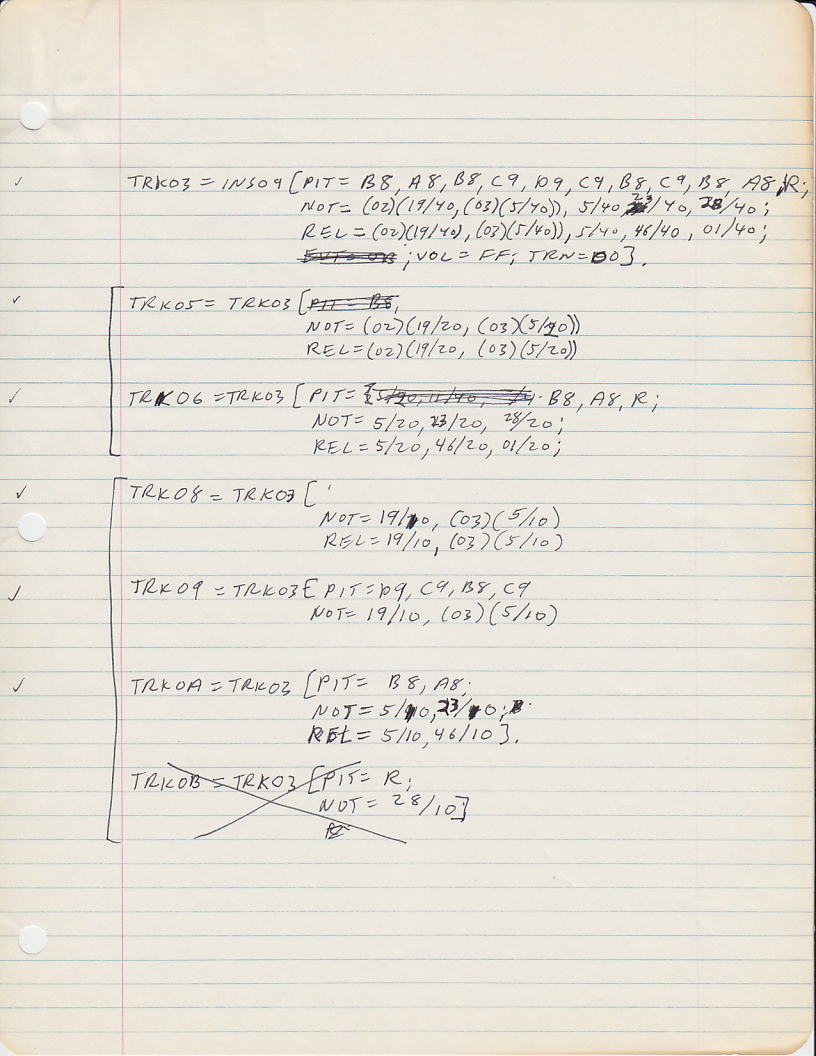 TRK03 = INS09 [PIT= B8, A8, B8, C9, D9, C9, B8, C9, B8, A8, R;
NOT= (02)(19/40, (03)(5/40)), 5/40, 23/40, 28/40;
REL= (02)(19/40), (03)(5/40)), 5/40, 46/40, 01/40;
; VOL= FF; TRN=00].
TRK05= TRK03 [PIT= B8,
NOT= (02)(19/20, (03)(5/20))
REL=(02)(19/20, (03)(5/20))
TRK06 =TRK03 [PIT= B8, A8, R;
NOT= 5/20, 23/20, 28/20;
REL= 5/20, 46/20, 01/20;
TRK08 = TRK03 [
NOT= 19/10, (03)(5/10)
REL= 19/10, (03)(5/10)
TRK09 = TRK03[ PIT=D9, C9, B8, C9
NOT= 19/10, (03)(5/10)
TRK0A = TRK03 [PIT= B8, A8;
NOT= 5/10, 23/10;
REL= 5/10, 46/10].
TRK0B = TRK03 [PIT= R;
NOT= 28/10]